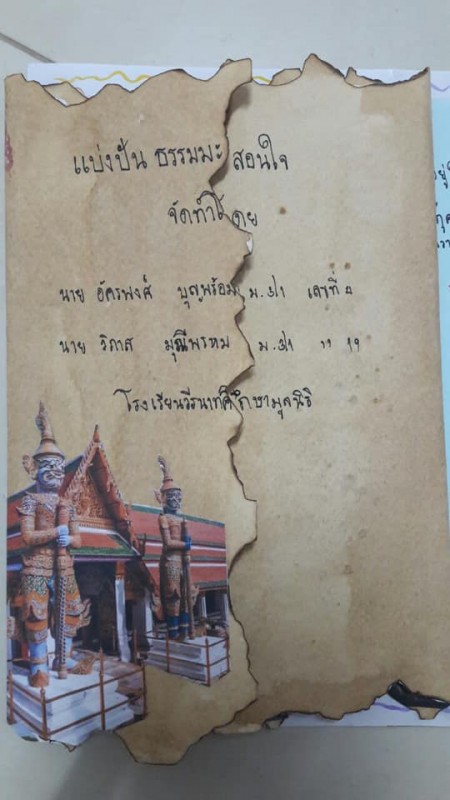 แบ่งปัน ธรรมมะ สอนใจ
จัดทำโดย
นาย อัครพงศ์ บุญพร้อม ม.๖/๑ เลขที่ ๘
นาย วิภาส มุณีพรหม ม.๖/๑ " ๑๑
โรงเรียนวีรนาทศึกษามูลนิธิ